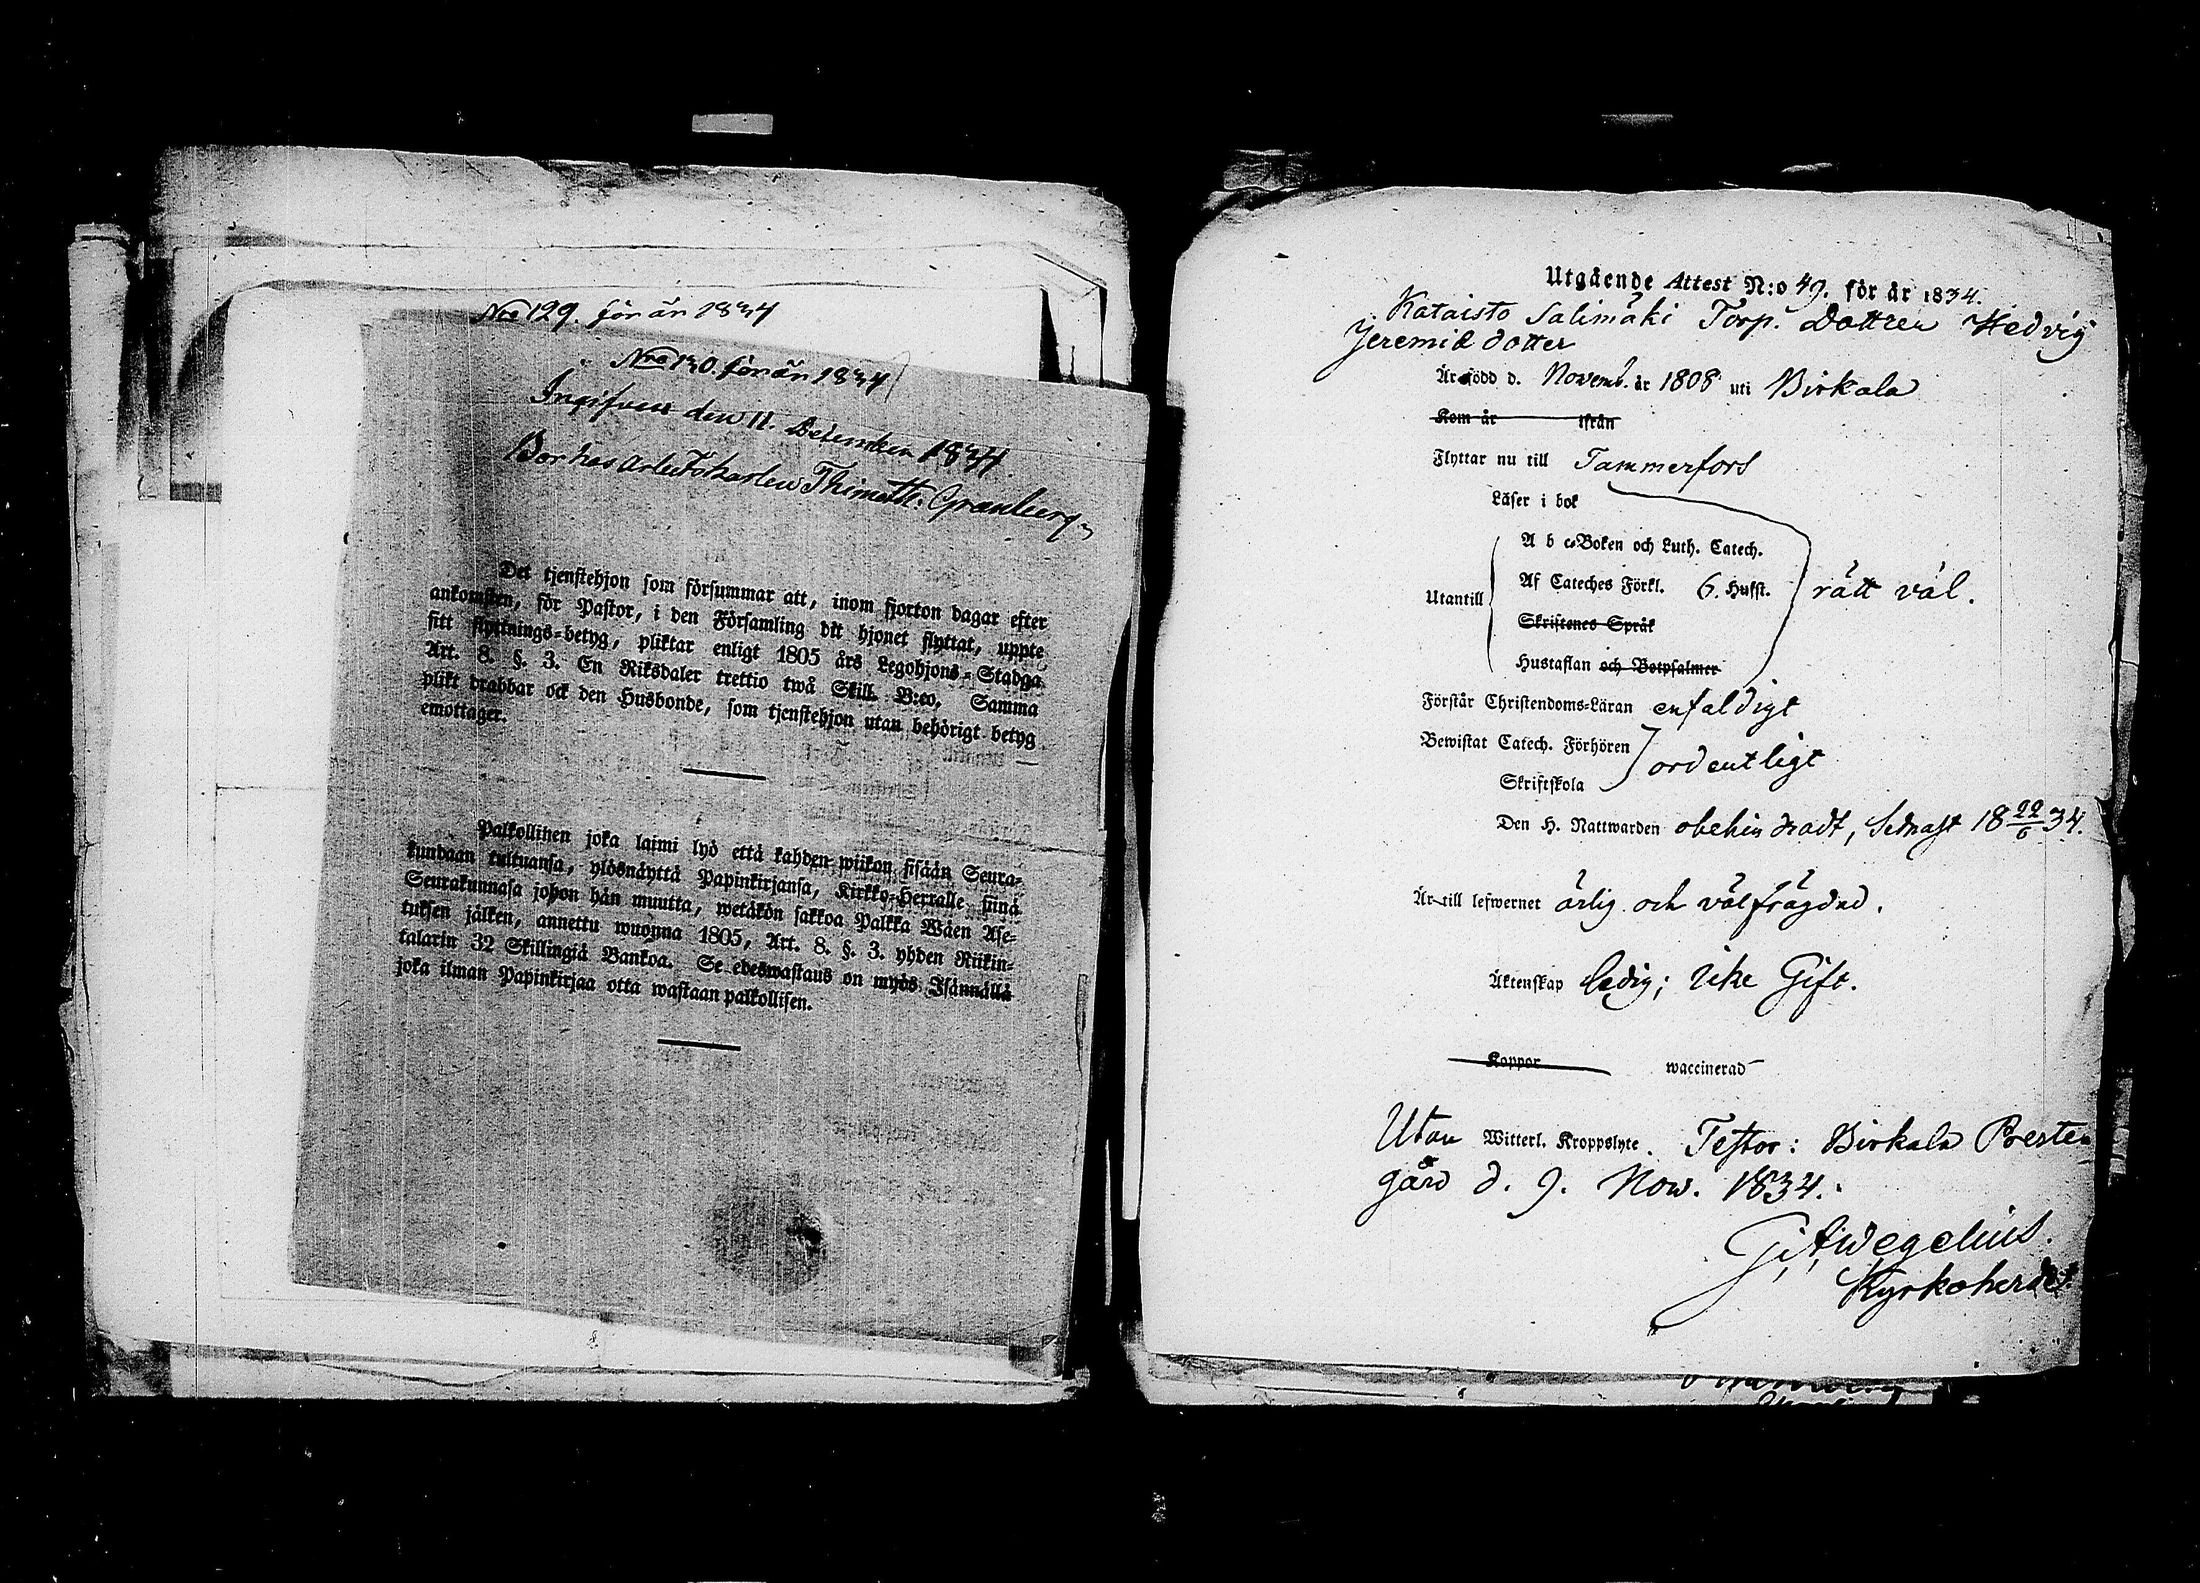 Nro 129. för år 1834
Nro 130. för år 1834
Ingifven den 11. December 1834
Bor hos Thimoth: Granberg
Det tjenstehjon som försummar att, inom fjorton dagar efter
ankomsten, för Pastor, i den Församling dit hjonet flyttat, uppte
sitt flyttnings=betyg, pliktar enligt 1805 års Legohjons=Stadga
Art. 8. §. 3. En Riksdaler trettio twå Skill. B:co, Samma
plikt drabbar ock den Husbonde, som tjenstehjon utan behörigt betyg
emottager.
Palkollinen joka laimi lyö että kahden wiikon sisään Seura=
kundaan tultuansa, ylösnäyttä Papinkirjansa, Kirkko=Herralle siinä
Seurakunnasa johon hän muutta, wetäkön sakkoa Palkka Wäen Ase=
tuksen jälken, annettu wuonna 1805, Art. 8. §. 3. yhden Riikin=
talarin 32 Skillingiä Bankoa. Se edeswastaus on myös Isännällä
joka ilman Papinkirjaa otta wastaan palkollisen.
Utgående Attest N:o 49. för år 1834.
Kataisto Salimäki Torp. Dottren Hedvig
Jeremiæ dotter
Är född d. Novemb. år 1808 uti Birkala
Kom år ifrån
Flyttar nu till Tammerfors
Läser i bok
A b c=Boken och Luth. Catech.
Af Cateches Förkl. 6. Hufst.
Utantill rätt väl.
Skriftenes Språk
Hustaflan och Botpsalmer
Förstår Christendoms=Läran enfaldigt
Bewistat Catech. Förhören
ordentligt
Skriftskola
Den H. Nattwarden obehindradt, sednast 18 22/6 34.
Är till lefwernet ärlig och välfrägdad.
Äktenskap ledig; icke Gift.
Koppor waccinerad
Utan Witterl. Kroppslyte. Testor: Birkala Preste-
gård d. 9. Nov. 1834.
G: A: Wegelius.
Kyrkoherde.